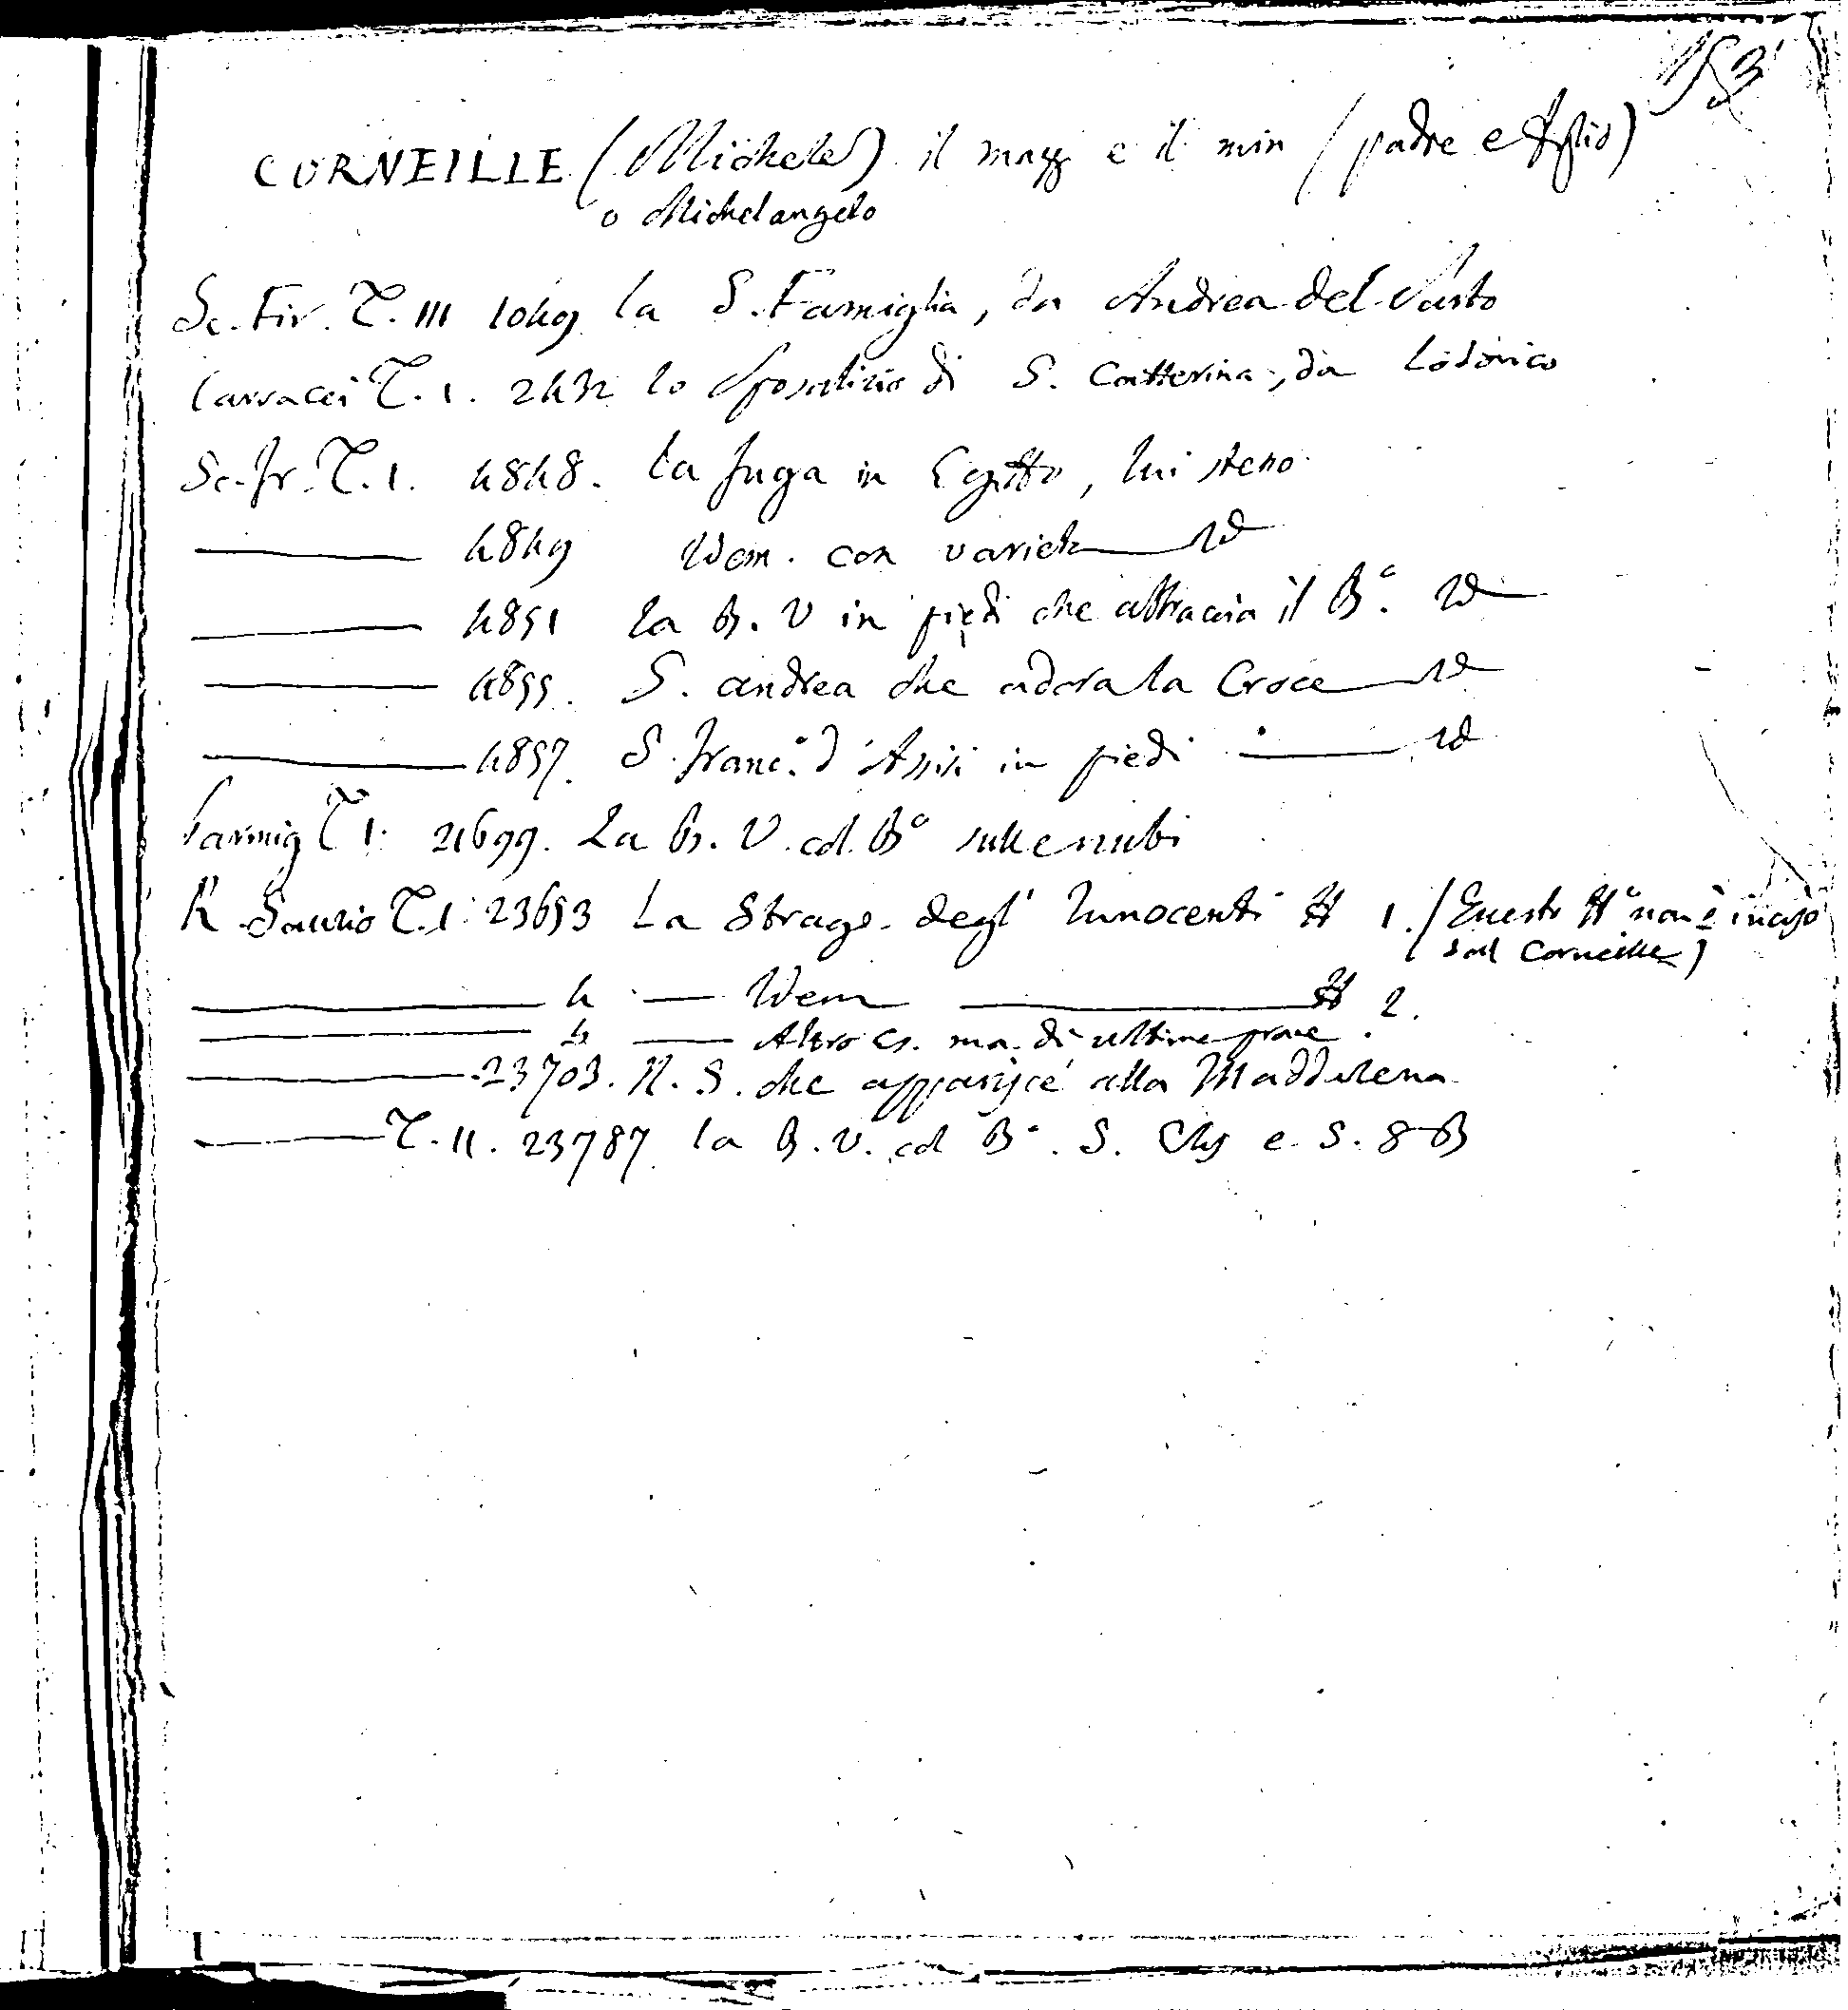 153
CORNEILLE (Michele) il magg e il min (padre e figlio)
o Michelangelo
Sc. Fir. T. III 1049 la S. Famiglia, da Andrea del Sarto
Carracci T. 1. 2432 lo Sposalizio di S. Catterina, da Lodovico
Sc. fr. T. 1. 4848. la fuga in Egitto, lui stesso
4849 Idem. con varietà Id
4851 la B. V in piedi che abbraccia il B.º Id
4855. S. andrea che adora la Croce Id
4857. S. Franc.º d'Assisi in piedi Id
Parmig T 1. 21699. La B. V. col Bº sulle nubi
R. Sanzio T. 1. 23693 La Strage degl' Innocenti # 1. (Questo #º non è inciso
dal Corneille)
4 Idem # 2.
4 Altro Es. ma di ultime prove.
23703. N. S. che apparisce alla Maddalena
T. II. 23787 la B. V. col Bº. S. e S.